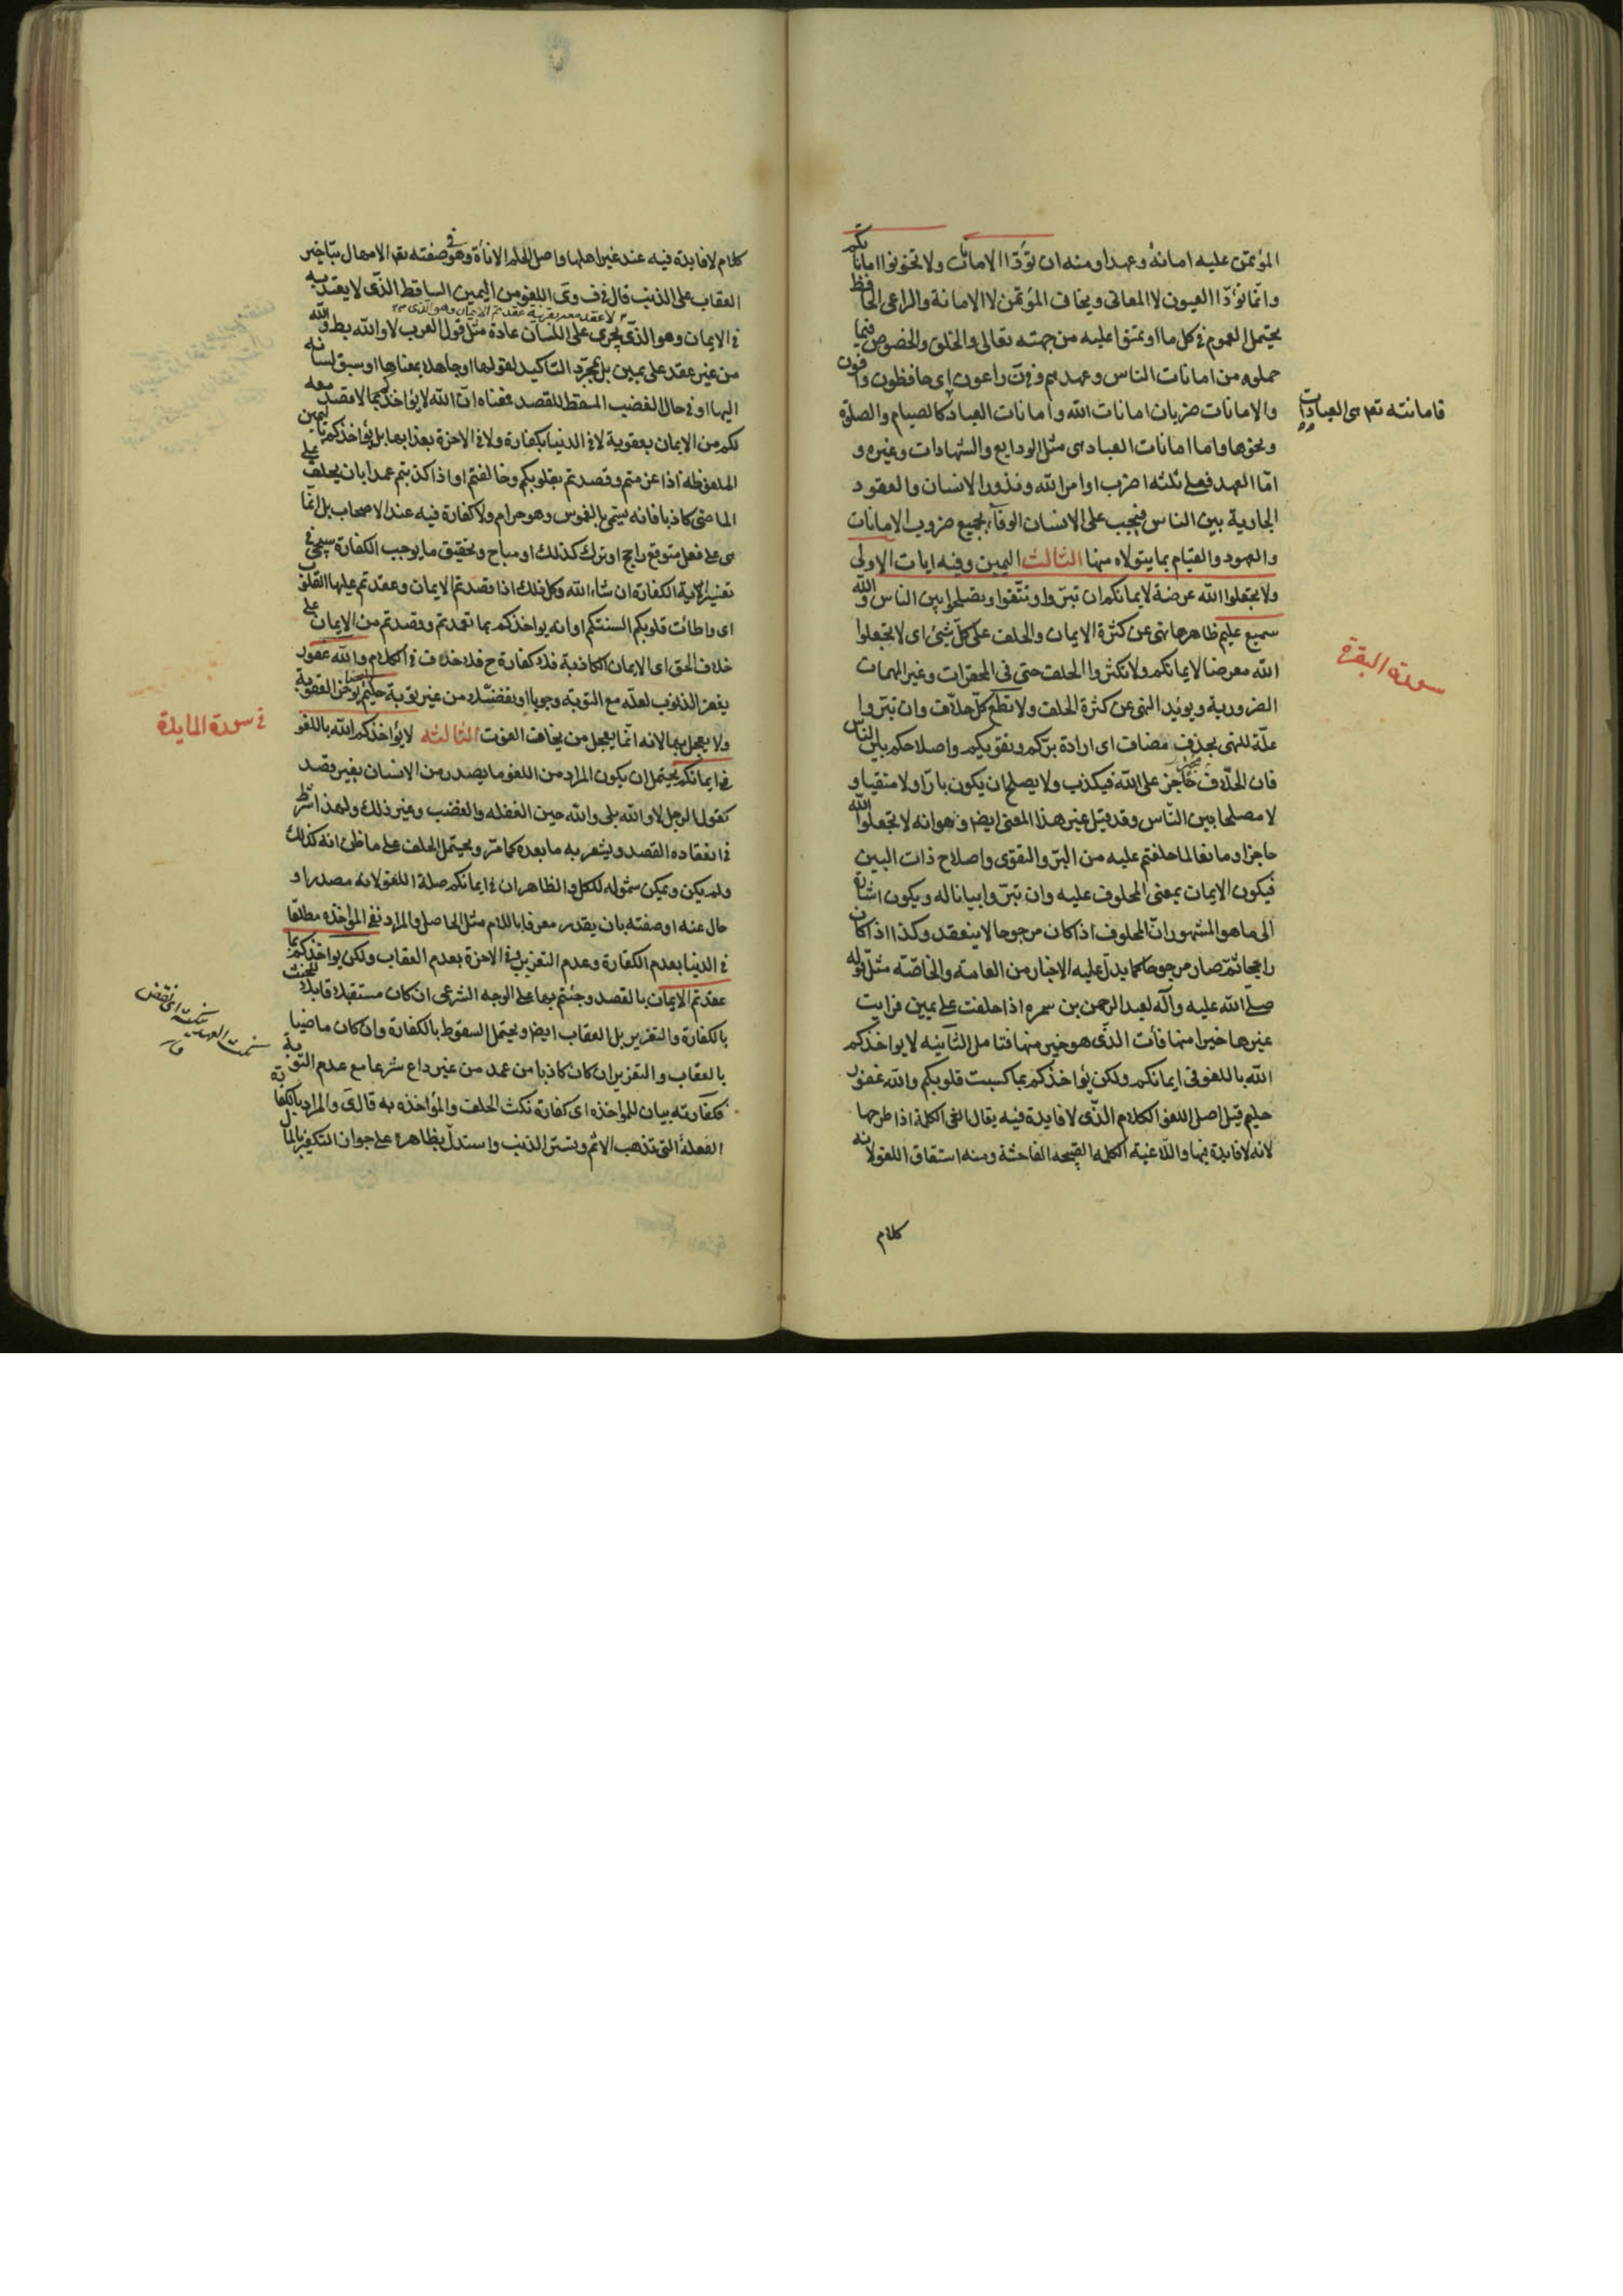 المؤتمن عليه امانة وعهدا ومنه ان تؤدّا الامانات ولا تخونوا اماناتكم
وانما تؤدّا العيون لا المعانى ويخاف المؤتمن لا الامانة والراعى الحافظ
يحتمل العموم فى كل ما اوتمنوا عليه من جهته تعالى والخلق والخصوص فيما
حملوه من امانات الناس وعهدهم وفى ن راعون اى حافظون وافون
والامانات ضربان امانات الله وامانات العباد كالصيام والصلوة
فامانته تعم هى العبادات
ونحوها واما امانات العباد هى مثل الودايع والشهادات وغيره و
امّا العهد فعلى ثلثه اضرب اوامر الله ونذور الانسان والعقود
الجارية بين الناس فيجب على الانسان الوفآء بجميع ضروب الامانات
والعهود والقيام بما يتولاه منها الثالث اليمين وفيه ايات الاولى
ولا تجعلوا الله عرضة لايمانكم ان تبرّوا وتتقوا وتصلحوا بين الناس والله
سميع عليم ظاهرها نهى عن كثرة الايمان والحلف على كلّ شئ اى لا تجعلوا
سورة البقرة
الله معرضا لايمانكم ولا تكثروا الحلف حتى فى المحقرات وغير المهمات
الضرورية ويؤيد النهى عن كثرة الحلف ولا تطع كلّ حلّاف وان تبرّوا
علّة للنهى بحذف مضاف اى ارادة برّكم وتقويكم واصلاحكم بين الناس
فان الحلّاف على الله فيكذب ولا يصلح ان يكون بارّا ولا متقيا و
لا مصلحا بين النّاس وقد قيل غير هذا المعنى ايضا وهو انه لا تجعلوا الله
حاجزا ومانعا لما حلفتم عليه من البرّ والتقوى واصلاح ذات البين
فيكون الايمان بمعنى المحلوف عليه وان تبرّوا بيانا له ويكون اشارة
الى ما هو المشهور انّ المحلوف اذا كان مرجوحا لا ينعقد وكذا اذا كان
راجحا ثمّ صار مرجوحا كما يدلّ عليه الاخبار من العامه والخاصّه مثل قوله
صلى الله عليه وآله لعبد الرحمن بن سمره اذا حلفت على يمين فرايت
غيرها خيرا منها فأت الذّى هو خير منها فتامل الثانيه لا يواخذكم
الله باللغو فى ايمانكم ولكن يؤاخذكم بما كسبت قلوبكم والله غفور
حليم قيل اصل اللغو الكلام الذّى لا فايدة فيه يقال الغى الكلمة اذا طرحها
لانه لا فايدة فيها واللاغية الكلمه القبيحه الفاحشة ومنه اشتقاق اللغو لانه
كلام
كلام لا فايدة فيه عند غير اهلها واصل الحلم الاناة وهو فى صفته تعم الامهال بتاخير
العقاب على الذنب قال فى ف وى اللغو من اليمين الساقط الذّى لا يعتد به
فى الايمان وهو الذّى يجرى على اللسان عادة مثل قول العرب لا والله بلى والله
من غير عقد على يمين بل بمجرّد التاكيد لقولها او جاهلا بمعناها او سبق لسانه
اليها او فى حال الغضب المسقط للقصد فمعناه انّ الله لا يؤاخذكم بما لا قصد معه
لكم من الايمان بعقوبة لا فى الدنيا بكفارة ولا فى الاخرة بعذابها بل يؤاخذكم باليمين
الملفوظة اذا عزمتم وقصدتم بقلوبكم وخالفتم او اذا كذبتم عمدا بان يحلف على
الماضى كاذبا فانه يسمى بالغموس وهو حرام ولا كفارة فيه عند الاصحاب بل انّما
هى على فعل متوقع راجح او ترك كذلك او مباح وتحقيق ما يوجب الكفارة سيجئ فى
تفسير آية الكفارة ان شاء الله وكل ذلك اذا قصدتم الايمان وعقدتم عليها القلوب
اى واطأت قلوبكم السنتكم او انه يواخذكم بما تعمدتم وقصدتم من الايمان على
خلاف الحق اى الايمان الكاذبة فلا كفارة ح فلا خلاف فى الكلام والله غفور
يغفر الذنوب لعلّه مع التوبة وجوبا او تفضّلا من غير توبة حليم يؤخر العقوبة
ولا يعجل بها لانه انّما يعجل من يخاف الفوت الثالثه لا يؤاخذكم الله باللغو
فى سورة المايدة
فى ايمانكم يحتمل ان يكون المراد من اللغو ما يصدر من الانسان بغير قصد
كقول الرجل لا والله بلى والله حين الغفله والغضب وغير ذلك ولهذا اشترط
فى انعقاده القصد ويشعر به ما بعده كما مّر ويحتمل الحلف على ما ظن انه كذلك
ولم يكن ويمكن شموله للكل والظاهر ان فى ايمانكم صلة اللغو لانه مصدر او
حال عنه او صفته بان يقدر معرفا باللام مثل الحاصل والمراد نفى المؤاخذه مطلقا
فى الدنيا بعدم الكفارة وعدم التعزير وفى الاخرة بعدم العقاب ولكن يواخذكم بما
عقدتم الايمان بالقصد وجئتم بها على الوجه الشرعى ان كان مستقبلا قابلا للحنث
بالكفارة والتعزير بل العقاب ايضا ويحتمل السقوط بالكفارة وان كان ماضيا
بالعقاب والتعزير ان كان كاذبا من عمد من غير داع شرعا مع عدم التوبة
فكفارته بيان للمواخذه اى كفارة نكث الحلف والمؤاخذه به قال ى والمراد بالكفارة
الفعلة التى تذهب الاثم وتستر الذنب واستدلّ بظاهره على جواز التكفير بالمال